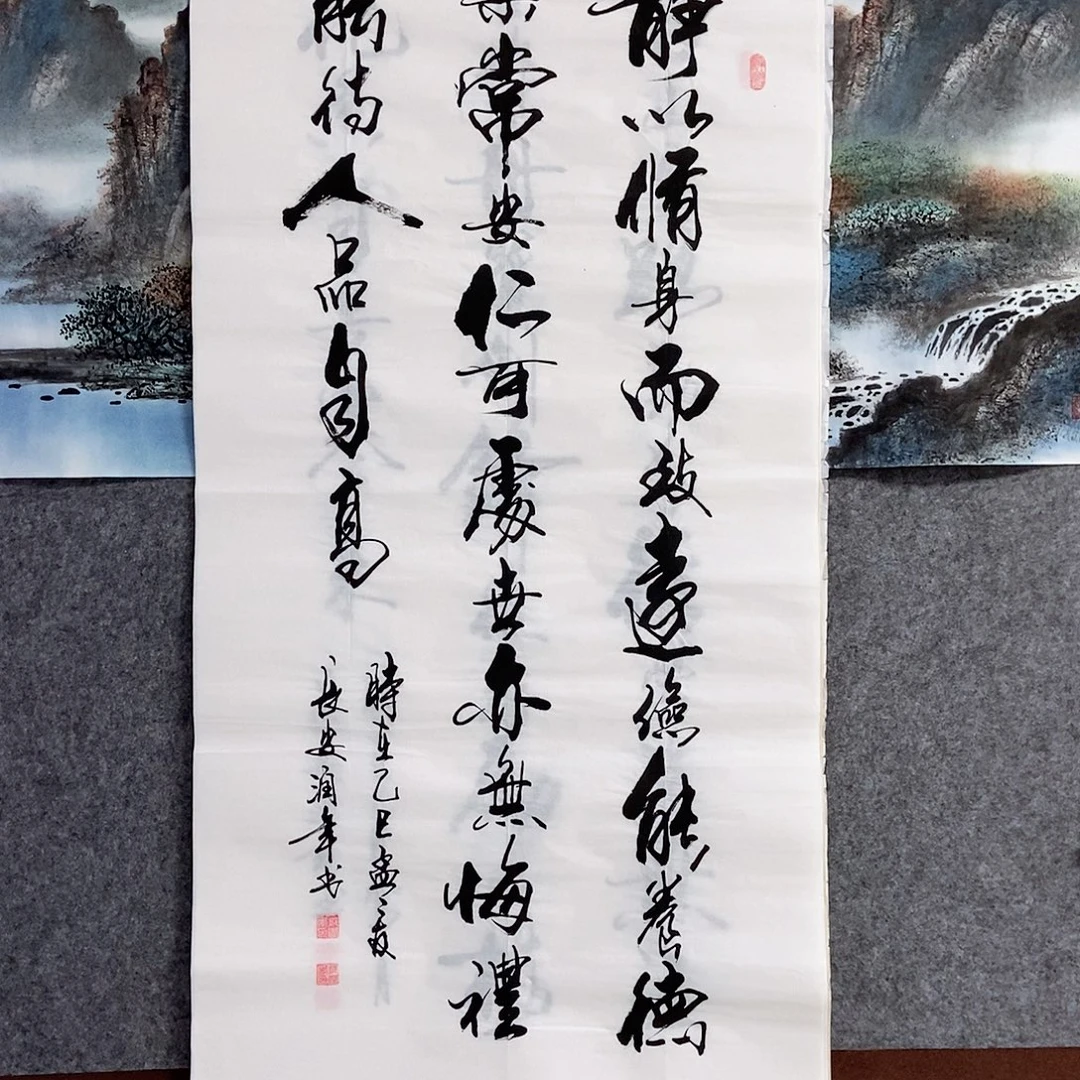 靜以脩身而致遠儉能養德
業常安仁可處世亦無悔禮
能待人品自高
時在乙巳孟夏
長安潤年书